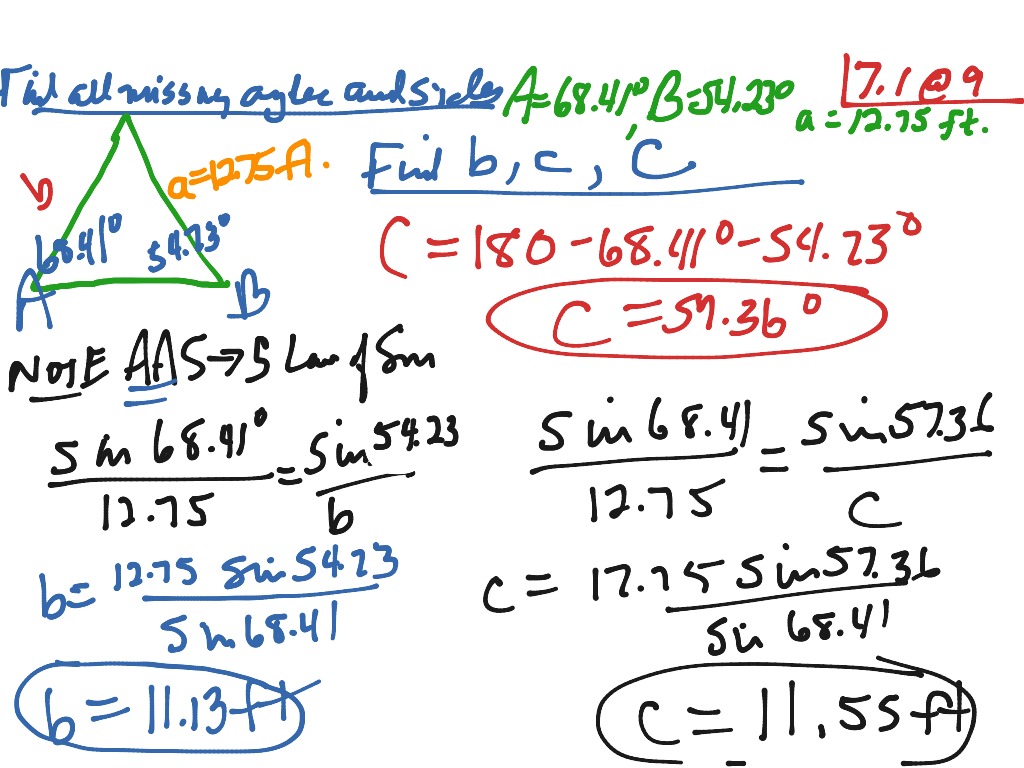 Find all missing angles and sides A=68.41°, B=54.23° 7.1@9
a=12.75 ft.
b a=12.75 ft. Find b, c, C
68.41° 54.23°
A B
C=180-68.41°-54.23°
C=57.36°
NOTE AAS→S Law of Sin
sin 68.41° = sin 54.23
12.75 b
sin 68.41 = sin 57.36
12.75 C
b= 12.75 sin 54.23
sin 68.41
c= 12.75 sin 57.36
sin 68.41
b=11.13 ft
c=11.55 ft